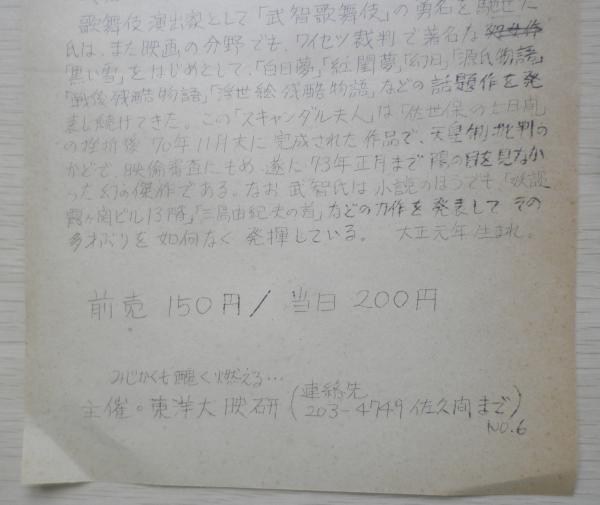 歌舞伎演出家として「武智歌舞伎」の勇名を馳せた
氏は、また映画の分野でも、ワイセツ裁判で著名な
「黒い雪」をはじめとして、「白日夢」「紅閨夢」「幻日」「源氏物語」
「戦後残酷物語」「浮世絵残酷物語」などの話題作を発
表し続けてきた。この「スキャンダル夫人」は「佐世保の七日間」
の挫折後 70年11月末に完成された作品で、天皇制批判の
かどで、映倫審査にもめ 遂に 73年正月まで 陽の目を見なか
った幻の傑作である。なお 武智氏は 小説のほうでも、「妖談
霞ヶ関ビル13階」「三島由紀夫の首」などの力作を発表して その
多才ぶりを如何なく発揮している。 大正元年生まれ。
前売 150円 / 当日 200円
みじかくも醜く燃える…
主催。東洋大映研 (連絡先
203-4749 佐久間まで)
NO.6